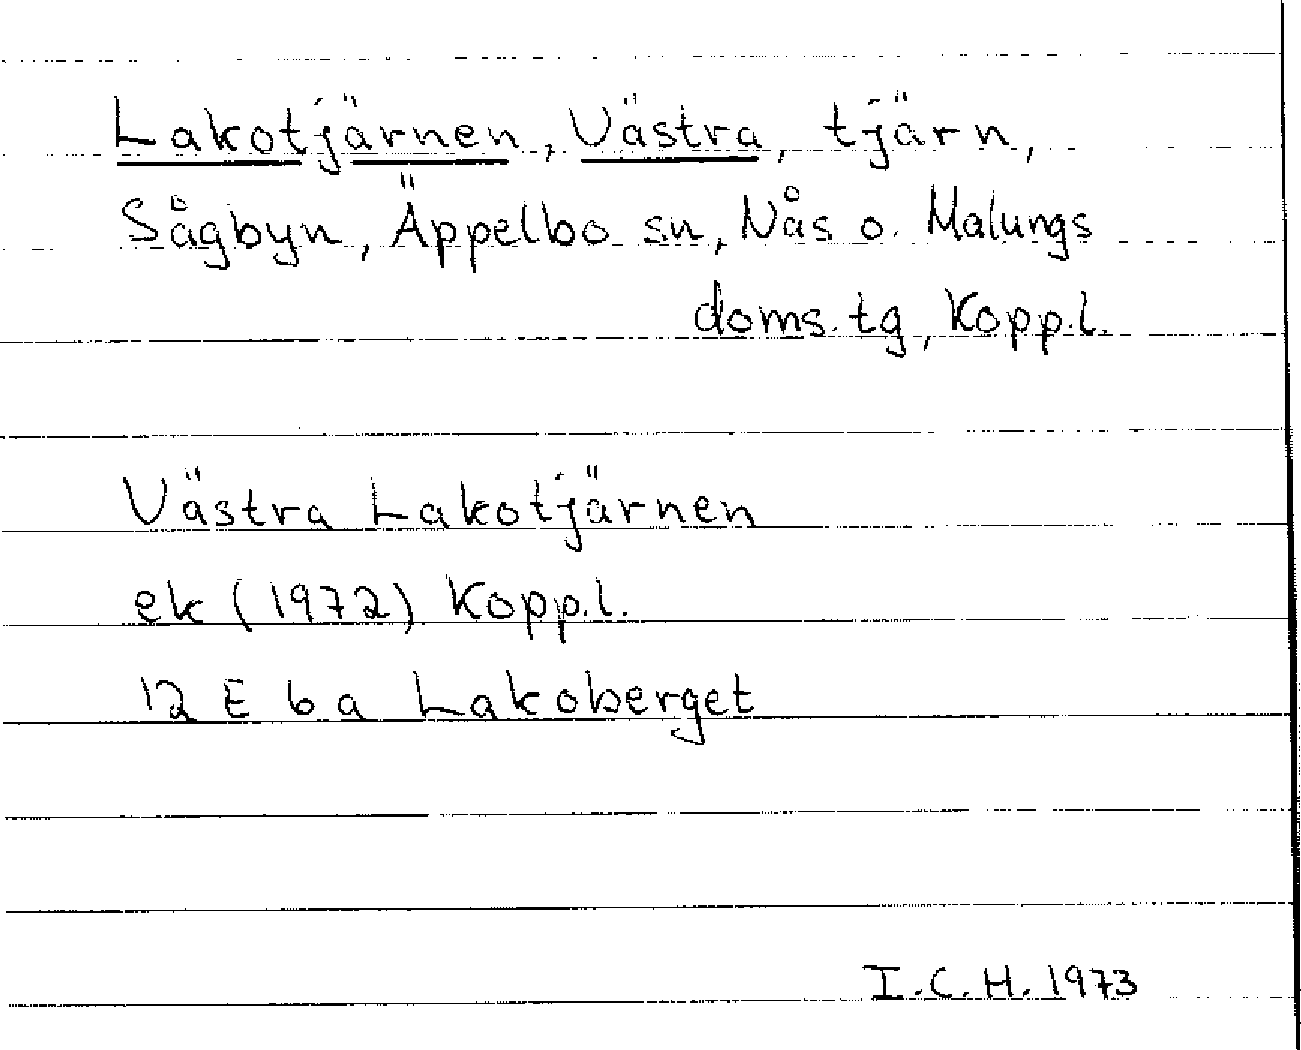 Lakotjärnen, Västra, tjärn,
Sågbyn, Äppelbo sn, Nås o. Malungs
doms.tg, Kopp.l.
Västra Lakotjärnen
ek (1972) Kopp.l.
12 E 6 a Lakoberget
I.C.H. 1973